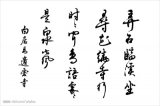 弄石臨溪坐
尋花繞寺行
時々聞鳥語處々
是泉聲
白居易遺愛寺